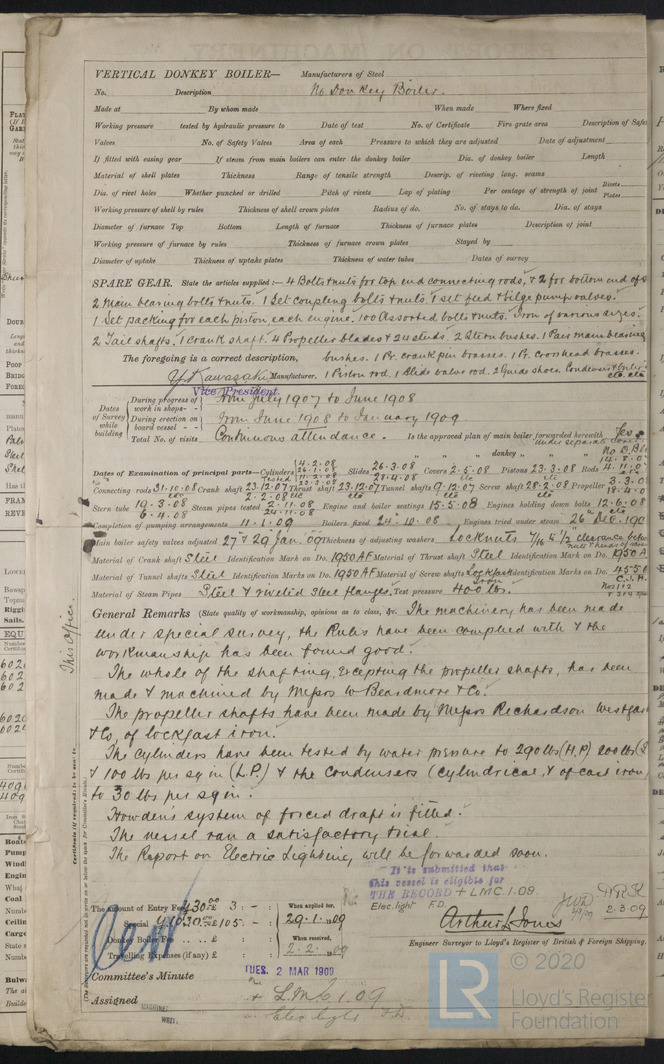 VERTICAL DONKEY BOILER— Manufacturers of Steel
No. Description No Donkey Boiler.
Made at By whom made When made Where fixed
Working pressure tested by hydraulic pressure to Date of test No. of Certificate Fire grate area Description of Safe
Valves No. of Safety Valves Area of each Pressure to which they are adjusted Date of adjustment
If fitted with easing gear If steam from main boilers can enter the donkey boiler Dia. of donkey boiler Length
Material of shell plates Thickness Range of tensile strength Descrip. of riveting long. seams
Dia. of rivet holes Whether punched or drilled Pitch of rivets Lap of plating Per centage of strength of joint Rivets Plates
Working pressure of shell by rules Thickness of shell crown plates Radius of do. No. of stays to do. Dia. of stays
Diameter of furnace Top Bottom Length of furnace Thickness of furnace plates Description of joint
Working pressure of furnace by rules Thickness of furnace crown plates Stayed by
Diameter of uptake Thickness of uptake plates Thickness of water tubes Dates of survey
SPARE GEAR. State the articles supplied:— 4 Bolts & nuts for top end connecting rods, & 2 for bottom end of s
2 Main bearing bolts & nuts. 1 Set coupling bolts & nuts 1 set feed & bilge pump valves.
1 Set packing for each piston, each engine, 100 Assorted bolts & nuts. Iron of various sizes.
2 Tail shafts, 1 crank shaft. 4 Propeller blades & 24 studs. 2 Stern bushes. 1 Pair main bearing
The foregoing is a correct description, bushes. 1 Pr. crank pin brasses. 1 Pr. Crosshead brasses.
Y. Kawasaki Manufacturer. 1 Piston rod. 1 Slide valve rod. 2 Guide shoes. Condenser &
Vice President.
Dates of Survey while building
During progress of work in shops- - From July 1907 to June 1908
During erection on board vessel - - From June 1908 to January 1909
Total No. of visits Continuous attendance. Is the approved plan of main boiler forwarded herewith Yes
under separate cover
" " " donkey " " " No D. Blr
Dates of Examination of principal parts—Cylinders 4.2.08 Slides 26.3.08 Covers 2.5.08 Pistons 23.3.08 Rods 4.11.0
Connecting rods 31.10.08 Crank shaft 23.12.07 Thrust shaft 23.12.07 Tunnel shafts 9.12.07 Screw shaft 28.2.08 Propeller 3.3.0
Stern tube 19.3.08 Steam pipes tested 2.11.08 Engine and boiler seatings 15.5.08 Engines holding down bolts 12.6.08
6.4.08 24.11.08
Completion of pumping arrangements 11.1.09 Boilers fixed 24.10.08 Engines tried under steam 26th Dec. 190
Main boiler safety valves adjusted 27 & 29 Jan. 09 Thickness of adjusting washers Locknuts 7/16 & 1/2 clearance
Material of Crank shaft Steel Identification Mark on Do. 1950 AF Material of Thrust shaft Steel Identification Mark on Do. 1950 A
Material of Tunnel shafts Steel Identification Marks on Do. 1950 AF Material of Screw shafts Lockfast Iron Identification Marks on Do. 4550
Material of Steam Pipes Steel & riveted steel flanges. Test pressure 400 lbs.
General Remarks (State quality of workmanship, opinions as to class, &c. The machinery has been made
under special survey, the Rules have been complied with & the
workmanship has been found good.
The whole of the shafting, excepting the propeller shafts, has been
made & machined by Messrs W Beardmore & Co.
The propeller shafts have been made by Messrs Richardson Westgar
& Co, of lockfast iron.
The cylinders have been tested by water pressure to 290 lbs (H.P) 200 lbs (
& 100 lbs per sq in (L.P.) & the condensers (cylindrical, & of cast iron)
to 30 lbs per sq in.
Howden's system of forced draft is fitted.
The vessel ran a satisfactory trial.
The Report on Electric Lighting, will be forwarded soon.
It is submitted that
this vessel is eligible for
THE RECORD + LMC 1.09.
Elec. light F.D.
2.3.09
The Amount of Entry Fee ¥30.00 £ 3 : - : When applied for,
Special ¥1030.00 £ 105 - : 29.1.09
Donkey Boiler Fee £ : : When received,
Travelling Expenses (if any) £ : : 2.2.09
Arthur L. Jones
Engineer Surveyor to Lloyd's Register of British & Foreign Shipping.
Committee's Minute TUES. 2 MAR 1909
Assigned + L.M.C. 1.09
Elec light F.D.
This Office.
© 2020
LR
Lloyd's Register
Foundation